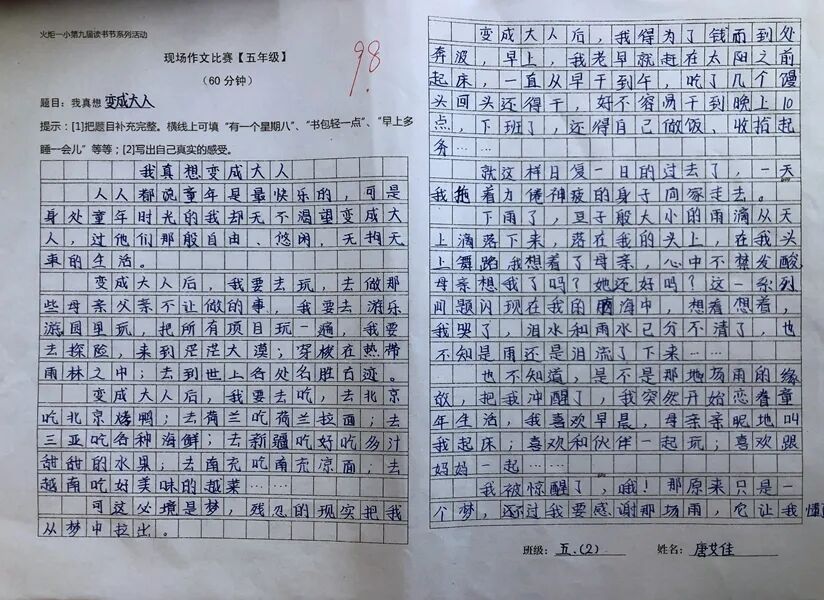 火炬一小第九届读书节系列活动
现场作文比赛【五年级】
（60分钟）
98
题目：我真想变成大人
提示：[1]把题目补充完整。横线上可填“有一个星期八”、“书包轻一点”、“早上多
睡一会儿”等等；[2]写出自己真实的感受。
我真想变成大人
人人都说童年是最快乐的，可是
身处童年时光的我却无不渴望变成大
人，过他们那般自由、悠闲，无拘无
束的生活。
变成大人后，我要去玩，去做那
些母亲父亲不让做的事，我要去游乐
游园里玩，把所有项目玩一遍，我要
去探险，来到茫茫大漠；穿梭在热带
雨林之中；去到世上各处名胜古迹。
变成大人后，我要去吃，去北京
吃北京烤鸭；去荷兰吃荷兰拉面；去
三亚吃各种海鲜；去新疆吃好吃多汁
甜甜的水果；去南充吃南充凉面，去
越南吃好美味的越菜……
可这必境是梦，残忍的现实把我
从梦中拉出。
变成大人后，我得为了钱而到处
奔波，早上，我老早就赶在太阳之前
起床，一直从早干到午，吃了几个馒
头回头还得干，好不容易干到晚上10
点，下班了，还得自己做饭、收拾起
务……
就这样日复一日的过去了，一天
我拖着力倦神疲的身子向家走去。
下雨了，豆子般大小的雨滴从天
上滴落下来，落在我的头上，在我头
上舞蹈我想着了母亲，心中不禁发酸，
母亲想我了吗？她还好吗？这一系列
问题闪现在我的脑海中，想着想着，
我哭了，泪水和雨水已分不清了，也
不知是雨还是泪流了下来……
也不知道，是不是那地场雨的缘
故，把我冲醒了，我突然开始恋眷童
年生活，我喜欢早晨，母亲亲昵地叫
我起床；喜欢和伙伴一起玩；喜欢跟
妈妈一起……
我被惊醒了，哦！那原来只是一
个梦，不过我要感谢那场雨，它让我懂
班级：五.(2) 姓名：唐艾佳